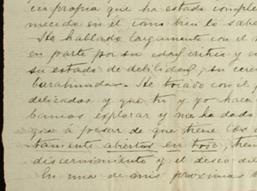 en propia que ha estado comple
mecedo en el como bien lo sabe
He hablado largamente con el
en parte por su edad critica y en
su estado de debilidad, su cere
barahunda. He tocado con el
delicadas y que tu y yo hace
bamos explorar y me ha dado
que á pesar de que tiene los
tamente abiertos en todo, tiene
discernimiento y el deseo de
En una de mis proximas